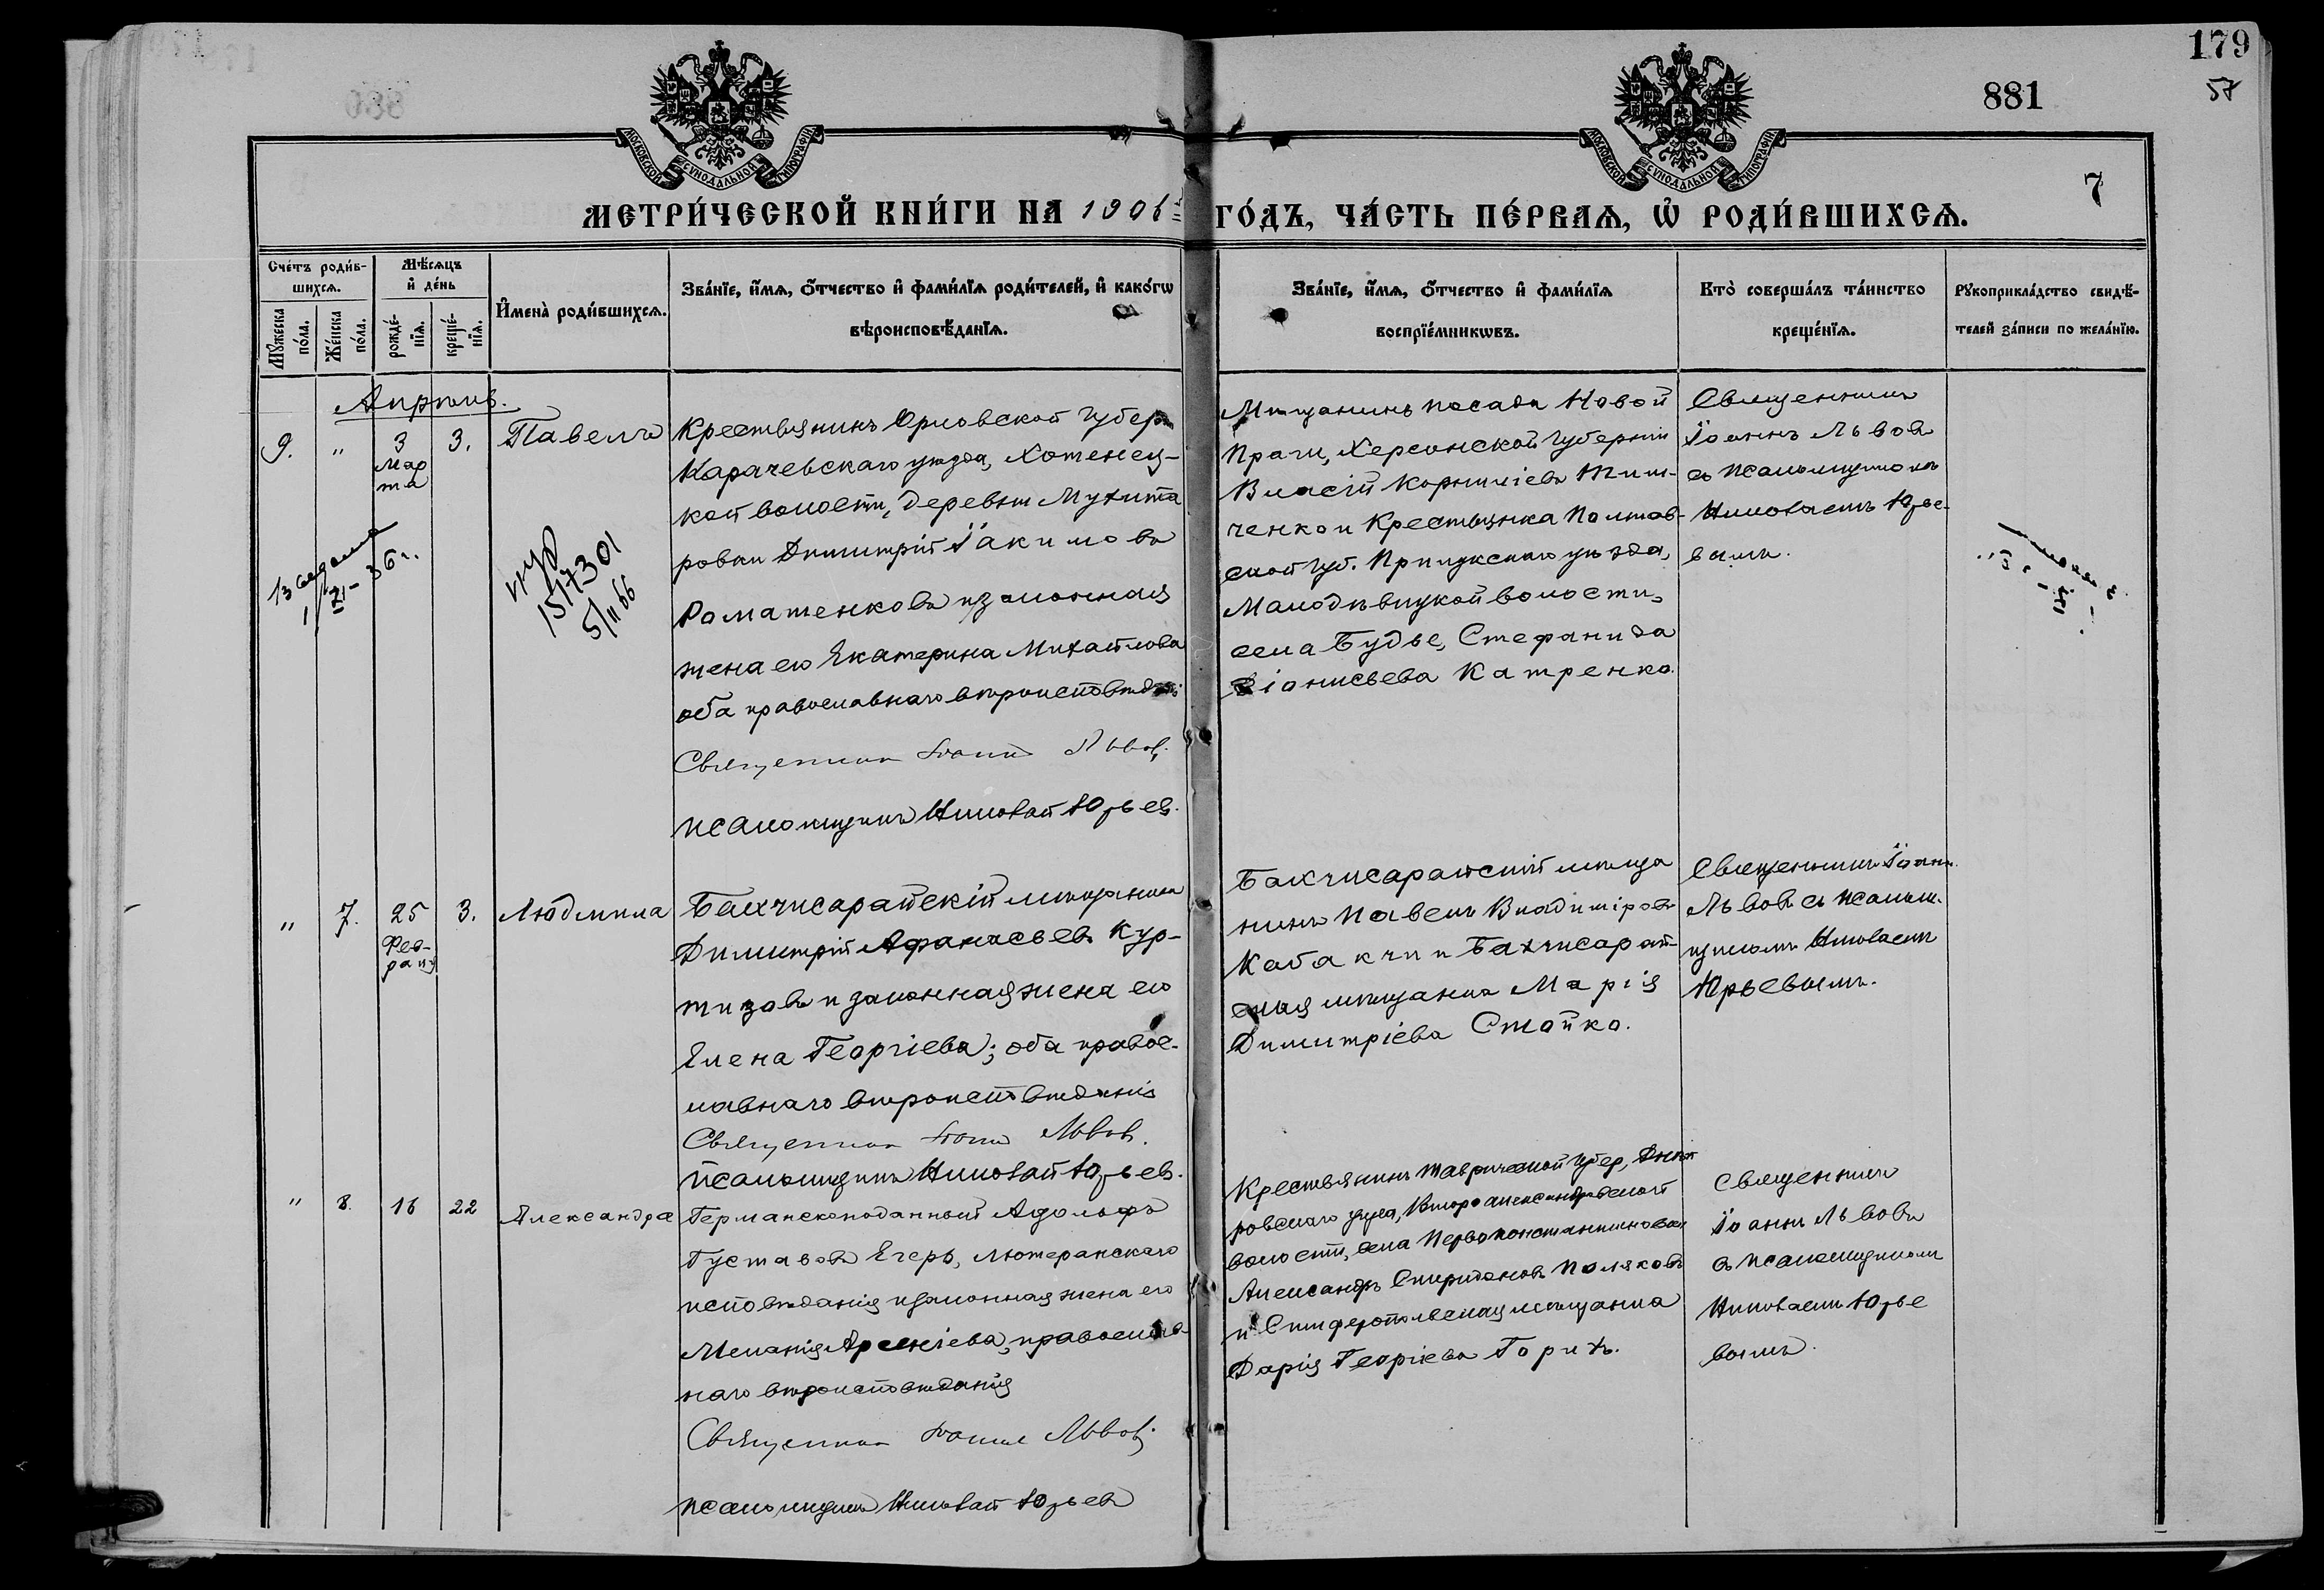 179
57
881
880
7
МОСКОВСКОЙ СѴНОДАЛЬНОЙ ТИПОГРАФІИ
МОСКОВСКОЙ СѴНОДАЛЬНОЙ ТИПОГРАФІИ
МЕТРИ́ЧЕСКОЙ КНИ́ГИ НА 1906 ГО́ДЪ, ЧА́СТЬ ПЕ́РВАѦ, Ѡ҆ РОДИ́ВШИХСѦ.
Сче́тъ роди́в-
шихсѧ.
Мꙋ́жеска
по́ла.
Же́нска
по́ла.
Мѣ́сѧцъ
и҆ де́нь
рожде́-
нїѧ.
креще́-
нїѧ.
И҆мена̀ роди́вшихсѧ.
Зва́нїе, и҆́мѧ, о҆́тчество и҆ фами́лїѧ роди́телей, и҆ како́гѡ
вѣроисповѣ́данїѧ.
Зва́нїе, и҆́мѧ, о҆́тчество и҆ фами́лїѧ
воспрїе́мникѡвъ.
Кто̀ соверша́лъ та́инство
креще́нїѧ.
Рꙋкоприкла́дство свидѣ́-
телей за́писи по жела́нїю.
Апрѣль.
9. " 3 3. Павелъ
Мар
та
Крестьянинъ Орловской губер
Карачевскаго уѣзда, Хотенец-
кой волости, деревни
ровки Димитрій Іакимовъ
Роматенковъ и законная
жена его Екатерина Михайлова
оба православнаго вѣроисповѣд
Священник Іоанн Львов.
псаломщикъ Николай Юрьев.
Мѣщанинъ посада Новой
Праги, Херсонской губерніи
Власій Корниліевъ Тим-
ченко и Крестьянка Полтав-
ской губ. Прилукскаго уѣзда,
Малодѣвицкой волости,
села Будье, Стефанида
Діонисьева Катренко.
Священникъ
Іоаннъ Львовъ
съ псаломщикомъ
Николаемъ Юрье-
вымъ.
15/7301
5/II 66
" 7. 25 3. Людмила
Фев-
раля
Бахчисарайскій мѣщанинъ
Димитрій Афанасьевъ Кур-
тизовъ и законная жена его
Елена Георгіева; оба правос-
лавнаго вѣроисповѣданія
Священник Іоанн Львов.
Псаломщикъ Николай Юрьев.
Бахчисарайскій мѣща
нинъ Павелъ Владиміровъ
Кабакчи и Бахчисарай-
ская мѣщанка Марія
Димитріева Стойко.
Священникъ Іоаннъ
Львовъ съ псалом-
щикомъ Николаемъ
Юрьевымъ.
" 8. 16 22 Александра
Германскоподанный Адольфъ
Густавовъ Егеръ, лютеранскаго
исповѣданія и законная жена его
Меланія Арсеніева, православ
наго вѣроисповѣданія
Священник Іоанн Львов.
псаломщикъ Николай Юрьевъ
Крестьянинъ Таврической губер, Днѣп
ровскаго уѣзда, Второалександровской
волости, села Первоконстантиновки
Александръ Спиридоновъ Поляковъ
и Симферопольская мѣщанка
Дарія Георгіева Горихъ.
Священникъ
Іоаннъ Львовъ
съ псаломщикомъ
Николаемъ Юрье
вымъ.